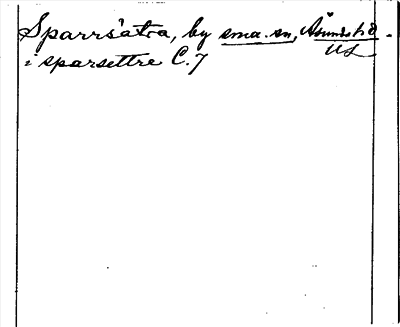 Sparrsätra, by sma. sn, Åsunda hd.
UL
i sparsettre C. 7